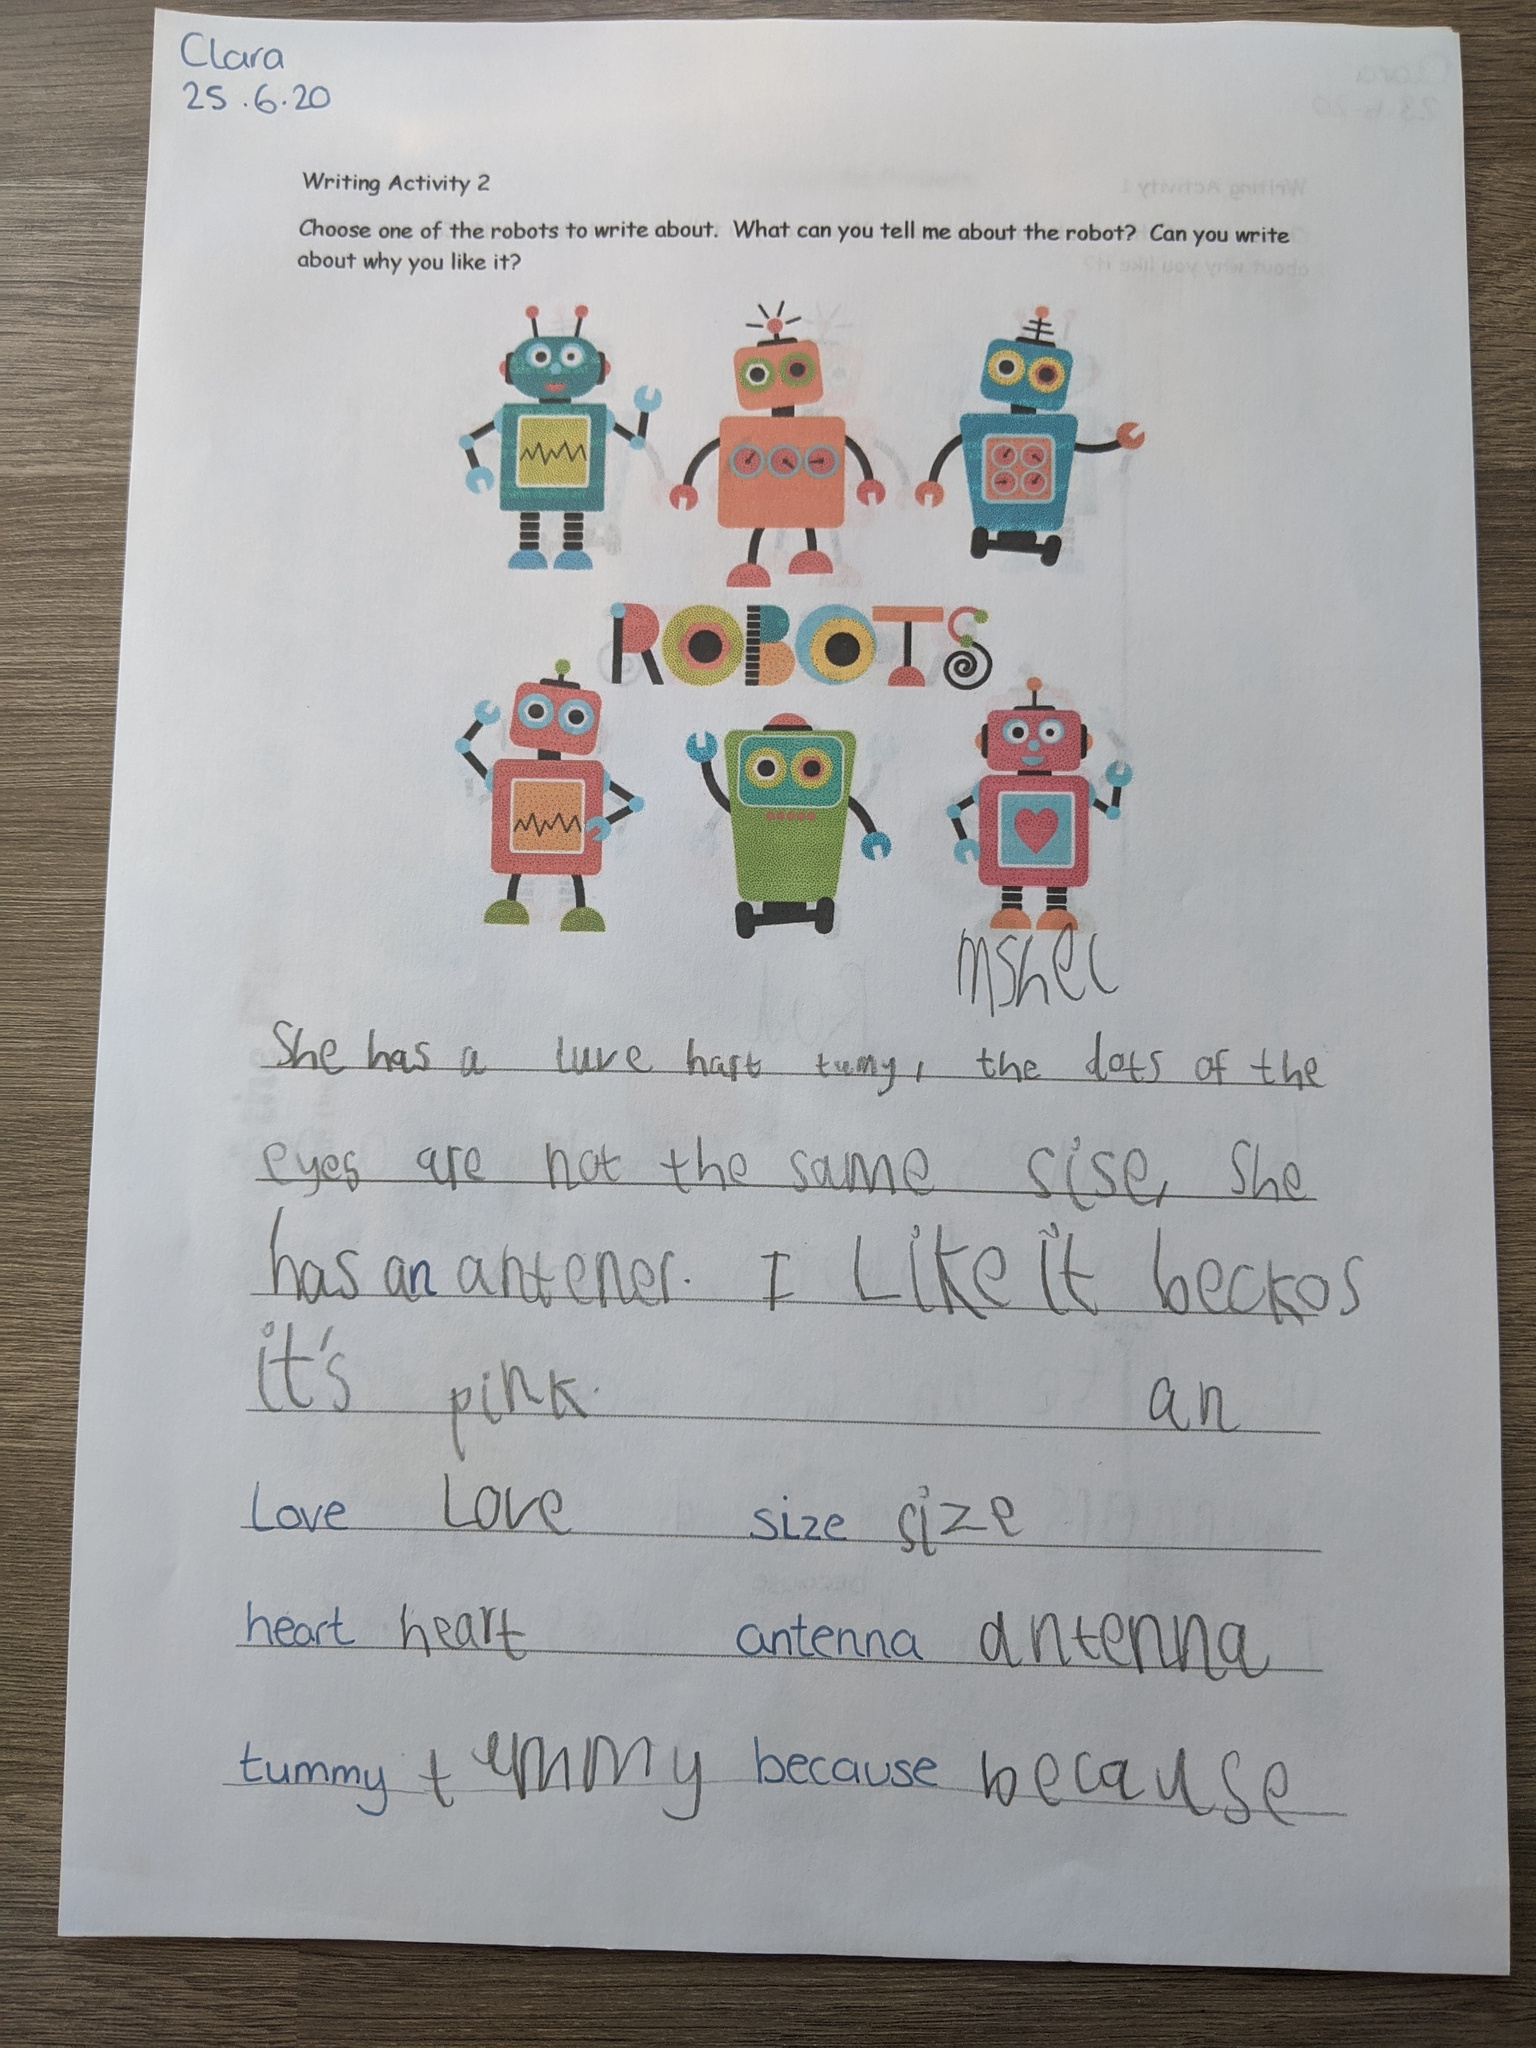 Clara
25.6.20
Writing Activity 2
Choose one of the robots to write about. What can you tell me about the robot? Can you write
about why you like it?
ROBOTS
mshel
She has a luve hart tumy, the dots of the
eyes are not the same sise, She
has an antener. I Like it beckos
it's pink. an
Love Love size size
heart heart antenna antenna
tummy tummy because because